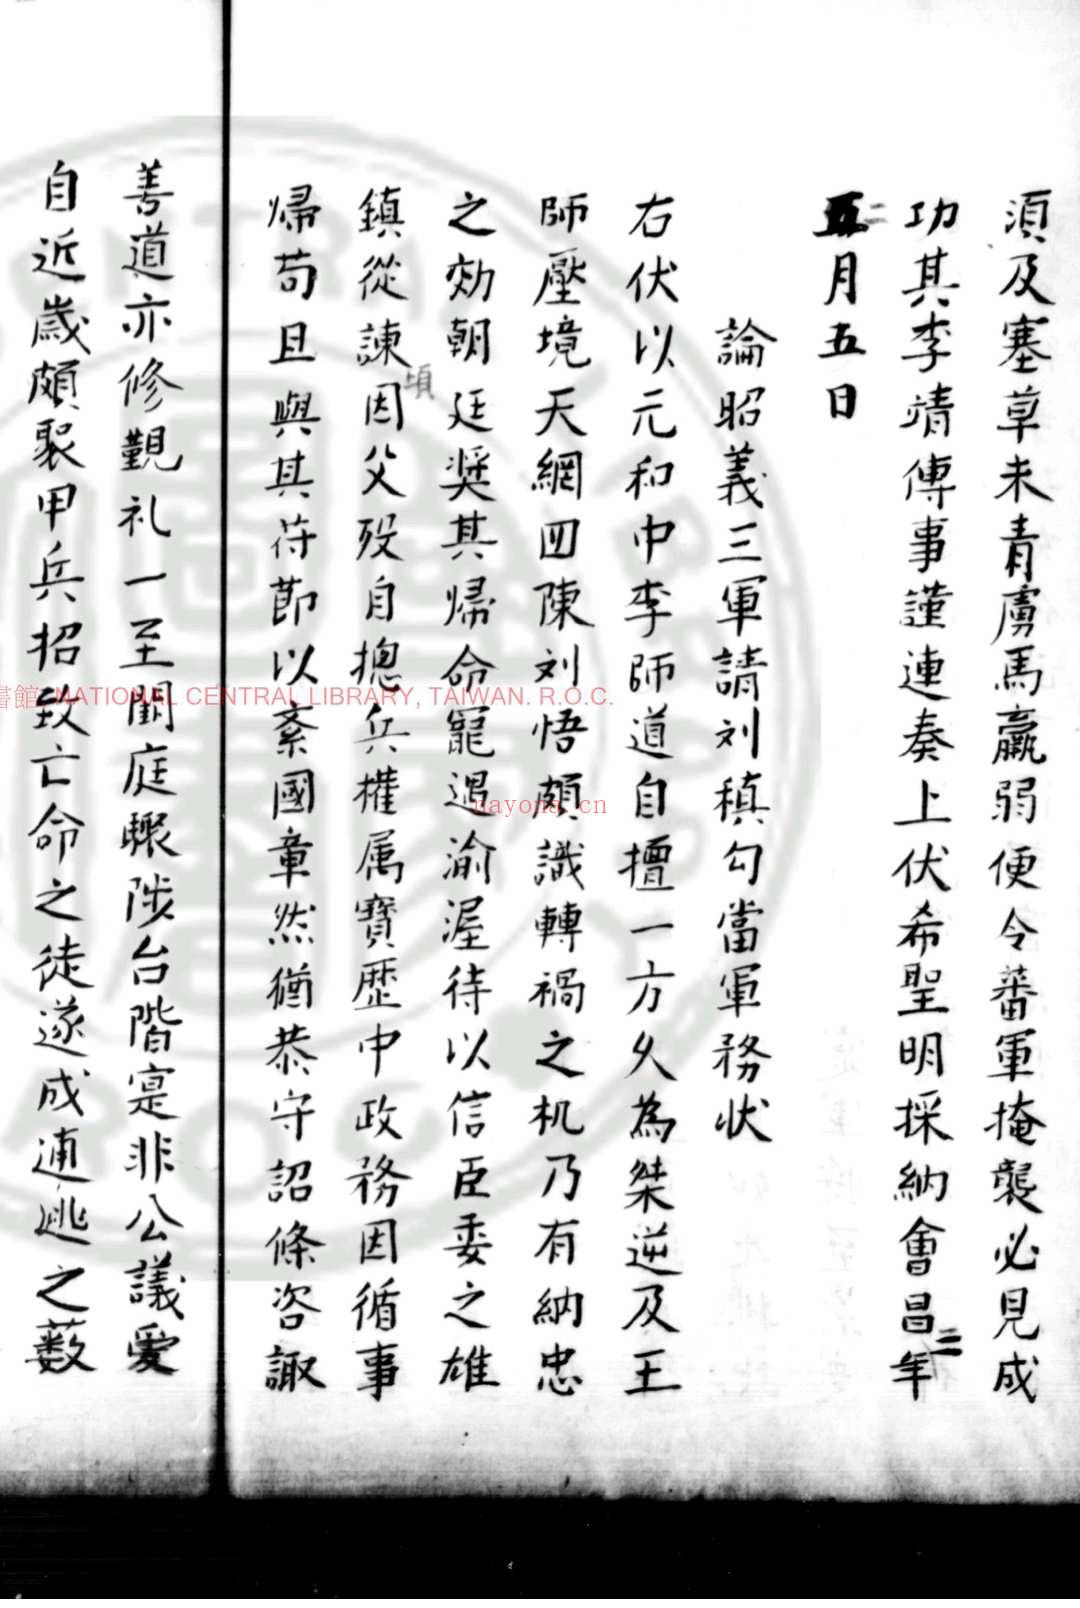 須及塞草未青虜馬羸弱便令蕃軍掩襲必見成
功其李靖傳事謹連奏上伏希聖明採納會昌二年
二月五日
論昭義三軍請刘稹勾當軍務状
右伏以元和中李師道自擅一方久為桀逆及王
師壓境天網四陳刘悟頗識轉禍之机乃有納忠
之効朝廷奨其帰命寵遇渝渥待以信臣委之雄
鎮從諫頃因父歿自摠兵權属寶歷中政務因循事
帰苟且與其苻莭以紊國章然猶恭守詔條咨諏
善道亦修覲礼一至闕庭驟陟台階寔非公議爰
自近歲頗聚甲兵招致亡命之徒遂成逋逃之藪
書館 NATIONAL CENTRAL LIBRARY, TAIWAN. R.O.C.
nayona.cn